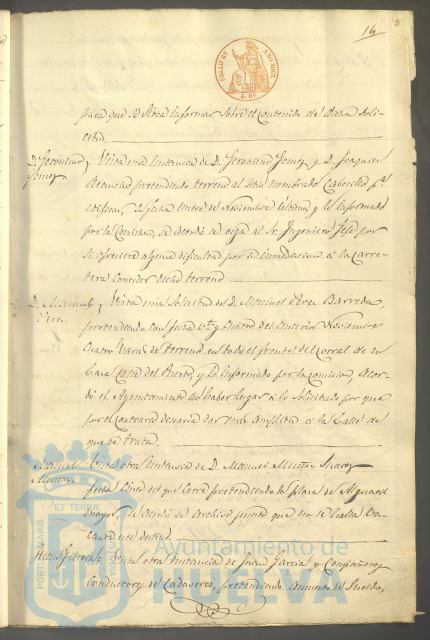 14
para que se sirva informar sobre el contenido de dicha soli-
citud.
D. Geronimo Gomez
y Vista una instancia de D. Geronimo Gomez y D. Joaquin
pretendiendo terreno al sitio nombrado Cabecillo pª
edificar, de fecha nueve de Noviembre último, y lo informado
por la Comision, se acordó se oiga al Sr. Ingeniero Jefe por
si ofreciere alguna dificultad por la inmediacion a la carre-
tera conceder dicho terreno
D. Manuel Perez
y Vista una solicitud de D. Manuel Perez Barreda,
pretendiendo con fecha veinte y cuatro del anterior Noviembre
cuatro varas de terreno en todo el frente del corral de su
casa calle del Puerto, y lo informado por la comision, acor-
dó el Ayuntamiento no haber lugar a lo solicitado por que
por el contrario desearia dar mas amplitud a la calle de
que se trata.
Manuel Muñoz
Vista otra instancia de D. Manuel Muñoz Suarez
fecha cinco del que corre pretendiendo la plaza de Alguacil
mayor, se acordó se archive puesto que no se halla va-
cante este destino.
Vista otra instancia de Juan Garcia y Compañeros
Conductores de Cadaveres, pretendiendo aumento de sueldo,
PORTUS MARIS
ET TERRAE
Ayuntamiento de
HUELVA